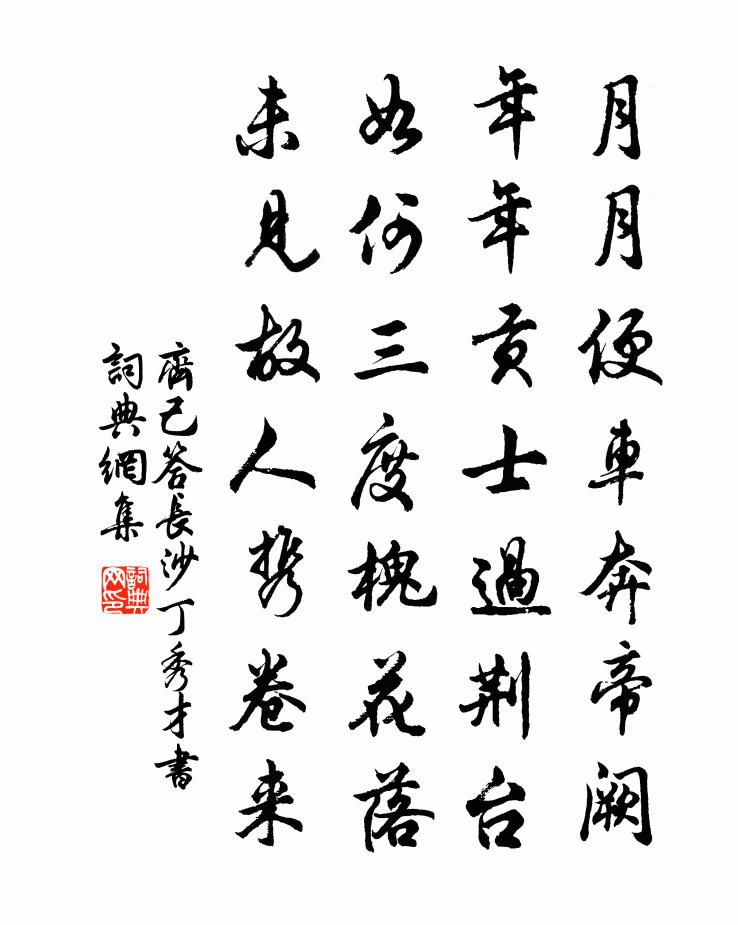 月月便車奔帝闕
年年貢士過荆台
如何三度槐花落
未見故人携卷来
齊己答長沙丁秀才書
詞典網集
詞典網印